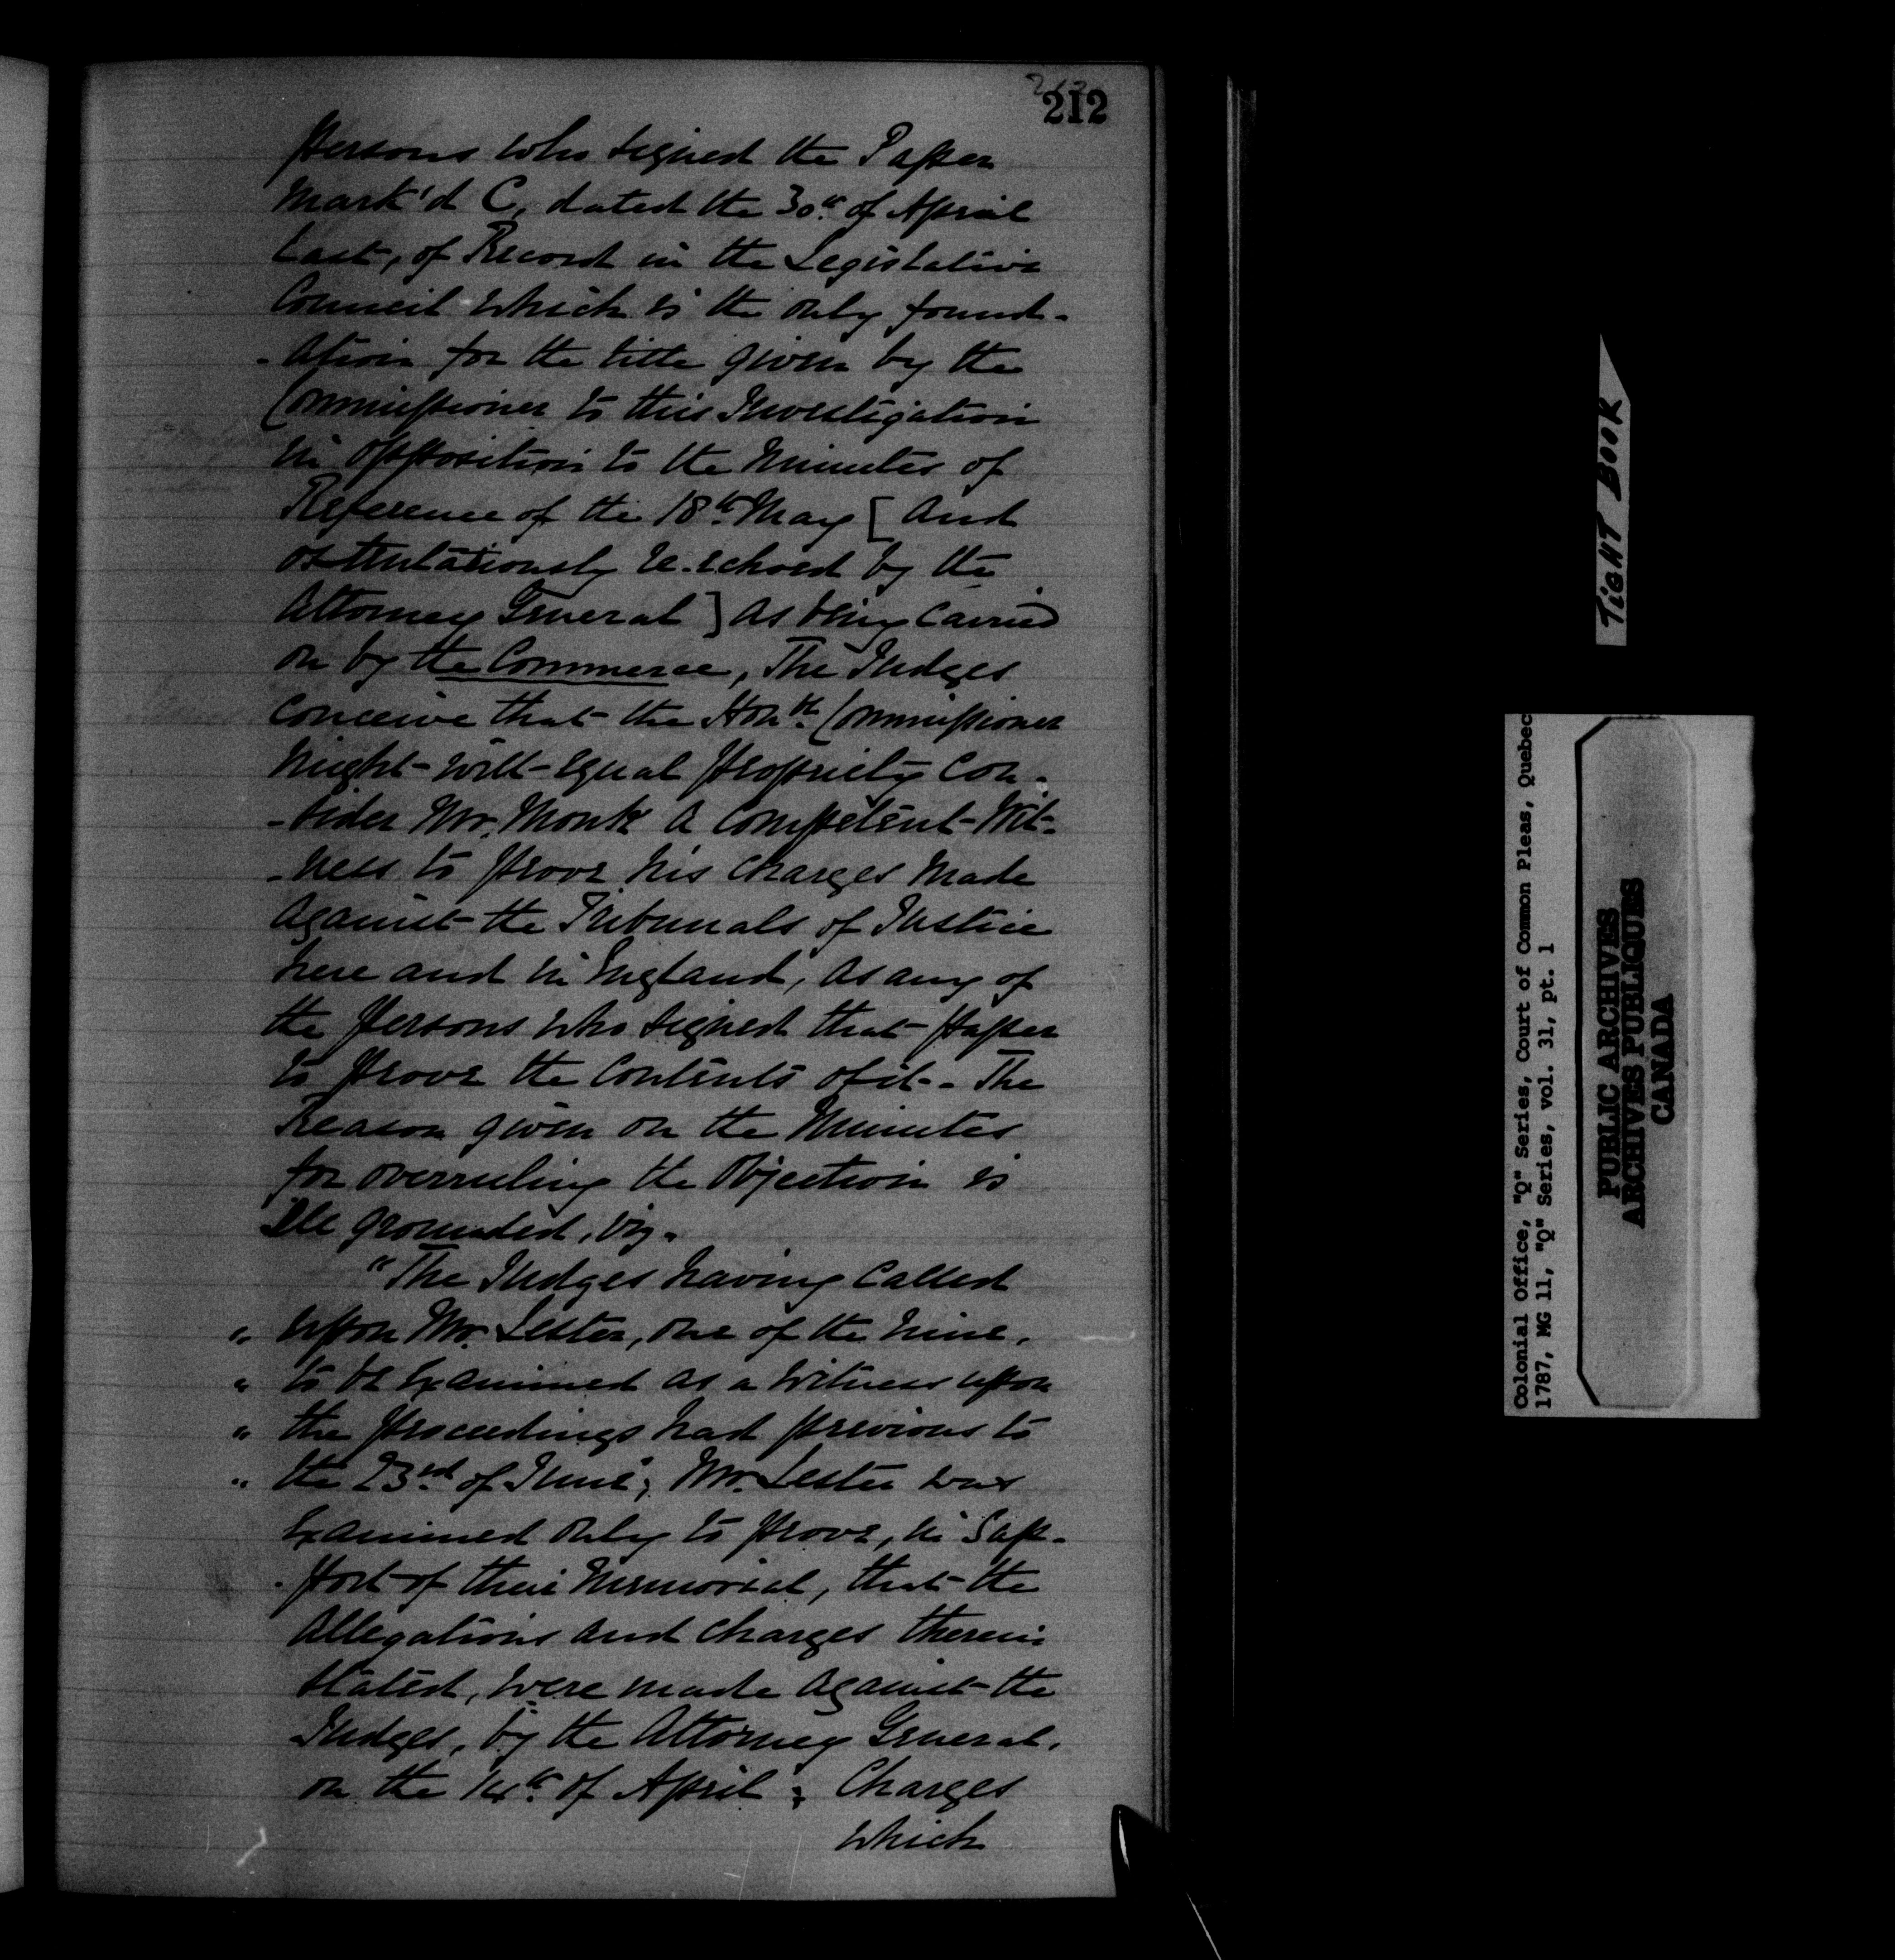 212
persons who signed the Paper
mark'd C, dated the 30th of April
last, of Record in the Legislative
Council which is the only found-
-ation for the title given by the
Commissioner to this Investigation
in opposition to the Minutes of
Reference of the 18th May [and
ostentatiously re-echoed by the
Attorney General] as being carried
on by the Commerce, The Judges
conceive that the Honble Commissioner
might with equal propriety con-
-sider Mr. Monk a competent Wit-
-ness to prove his charges made
against the Tribunals of Justice
here and in England, as any of
the persons who signed that paper
to prove the contents of it. - The
Reason given on the Minutes
for overruling the Objection is
Ill grounded, viz.
"The Judges having called
" upon Mr. Lester, one of the nine,
" to be examined as a witness upon
" the proceedings had previous to
" the 23rd of June; Mr. Lester was
examined only to prove, in Sup-
-port of their Memorial, that the
allegations and charges therein
stated, were made against the
Judges, by the Attorney General,
on the 14th of April; Charges
which
TIGHT BOOK
Colonial Office, "Q" Series, Court of Common Pleas, Quebec
1787, MG 11, "Q" Series, vol. 31, pt. 1
PUBLIC ARCHIVES
ARCHIVES PUBLIQUES
CANADA